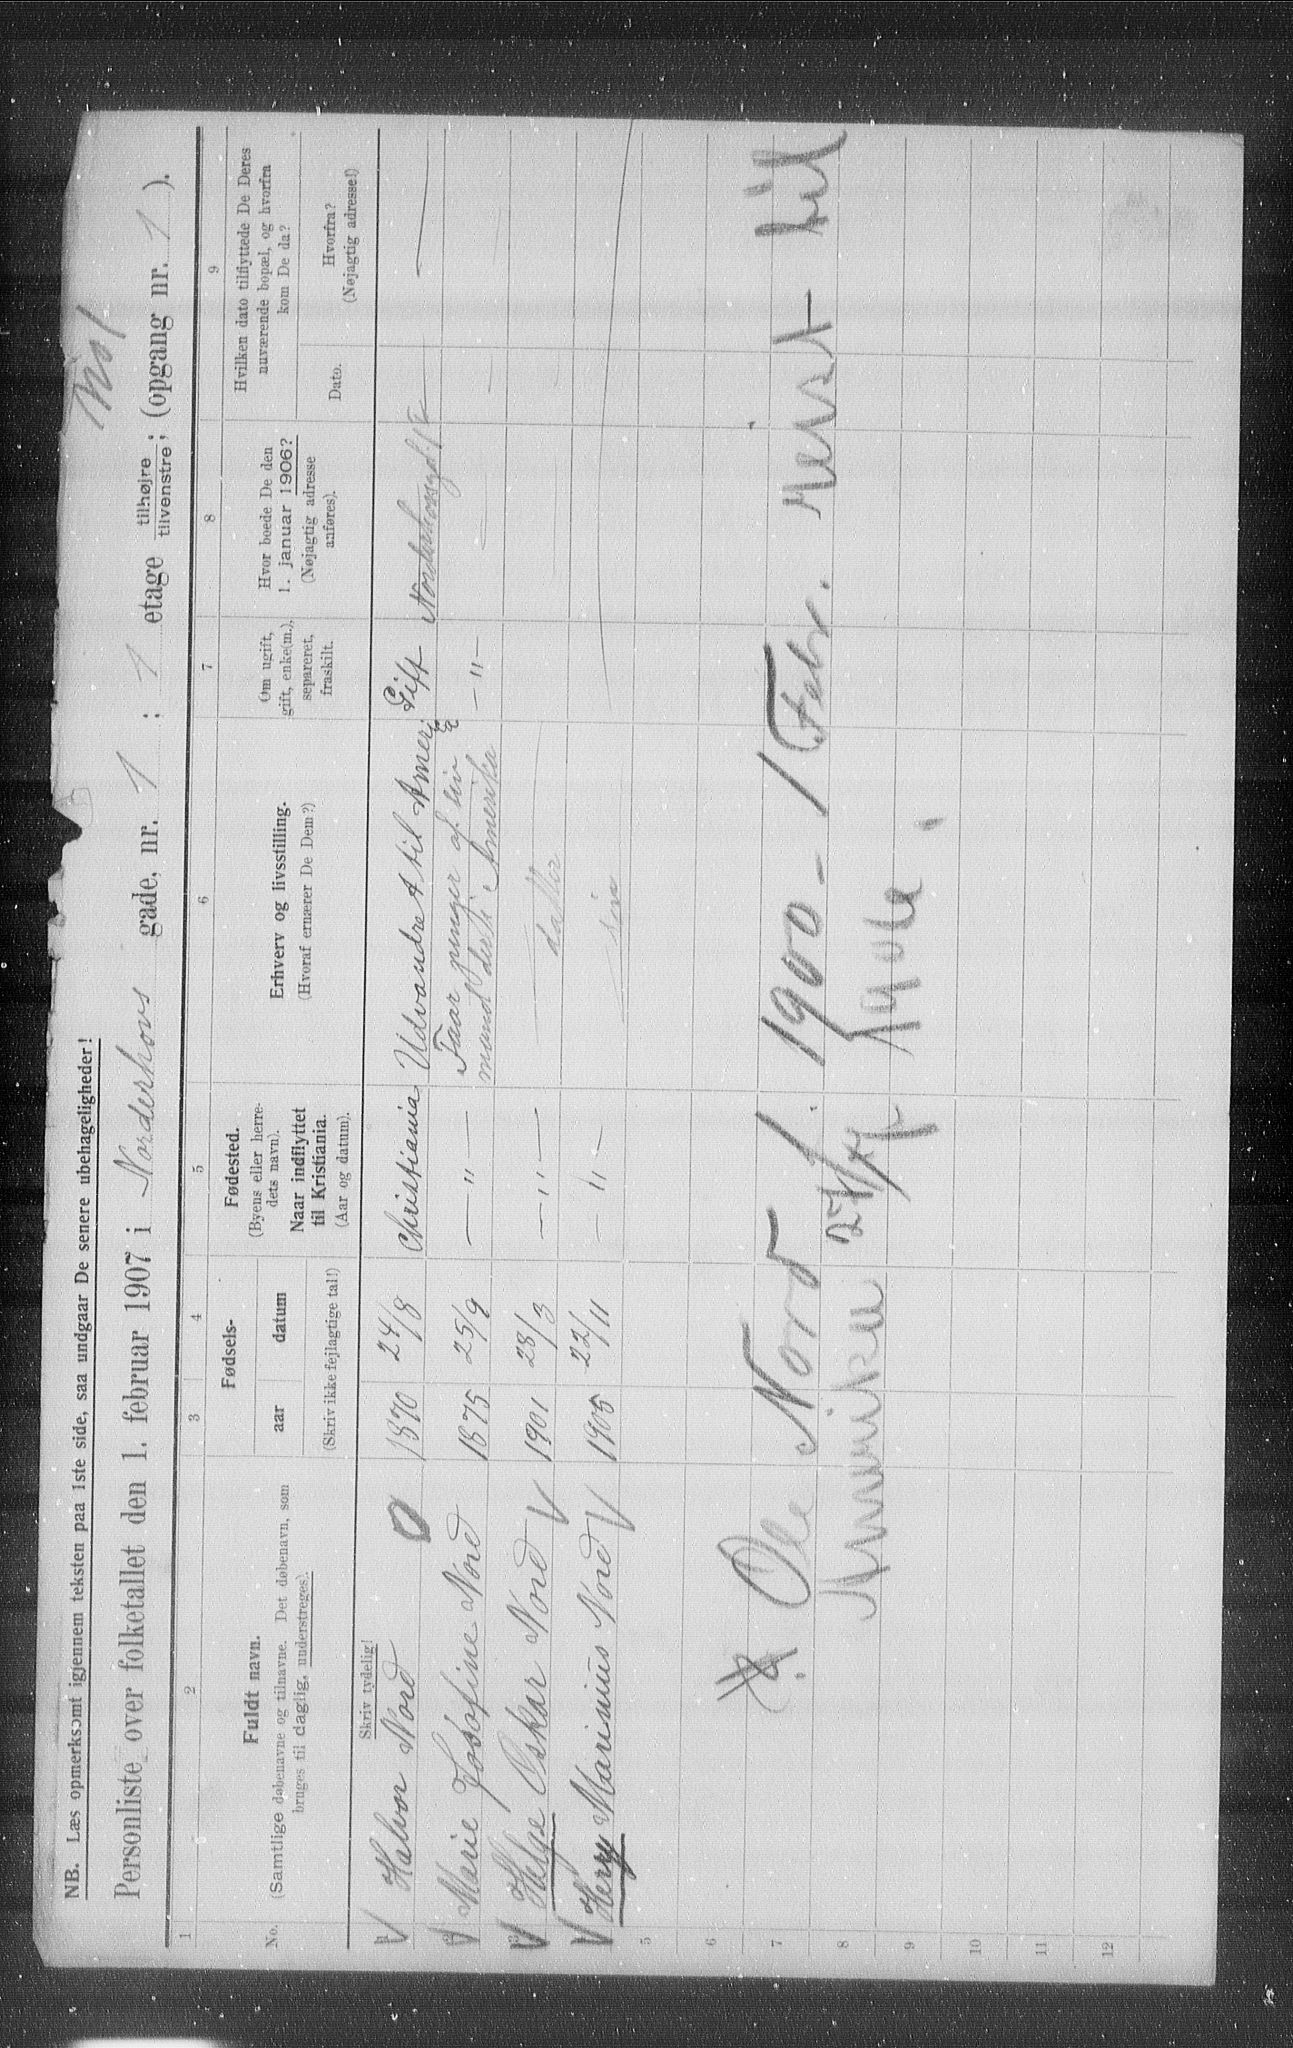 NB. Læs opmerksomt igjennem teksten paa 1ste side, saa undgaar De senere ubehageligheder!
Personliste over folketallet den 1. februar 1907 i Norderhovs gade, nr. 1 : 1 etage tilhøjre tilvenstre; (opgang nr. 1 ).
1 2 3 4 5 6 7 8 9
No.
Fuldt navn.
(Samtlige døbenavne og tilnavne. Det døbenavn, som
bruges til daglig, understreges).
Fødsels-
aar datum
Fødested.
(Byens eller herre-
dets navn).
Naar indflyttet
til Kristiania.
(Aar og datum).
Erhverv og livsstilling.
(Hvoraf ernærer De Dem?)
Om ugift,
gift, enke(m.),
separeret,
fraskilt.
Hvor boede De den
1. januar 1906?
(Nøjagtig adresse
anføres).
Hvilken dato tilflyttede De Deres
nuværende bopæl, og hvorfra
kom De da?
Dato.
Hvorfra?
(Nøjagtig adresse!)
Skriv tydelig!
(Skriv ikke fejlagtige tal!)
Halvor Nord 1870 24/8 Christiania Udvandret til Ameri Gift
Marie Josofine Nord 1875 25/9 — " — Faar penger af sin — " —
mand derti Amerika
3 Helge Oskar Nord 1901 28/3 — " — datter
Herry Marinius Nord 1905 22/11 — " — søn
5
6
7
8
9
10
11
12
Ole Nord f. 1900 - 1 Febr. reist til
Amerika